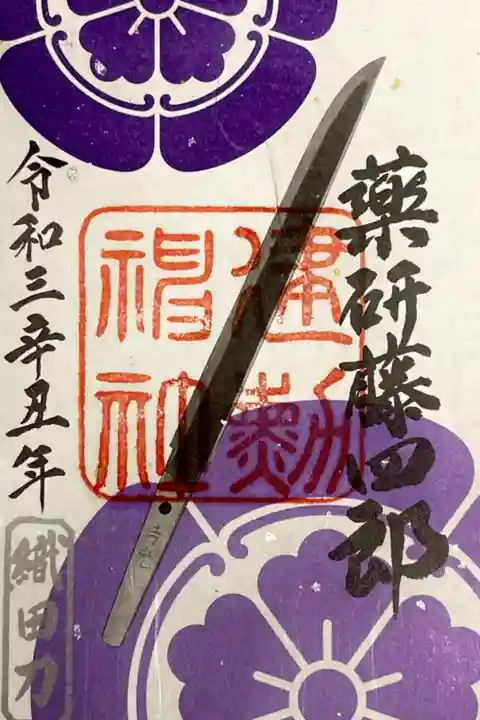 薬研藤四郎
建勲
神社
令和三辛丑年
織田刀
吉光